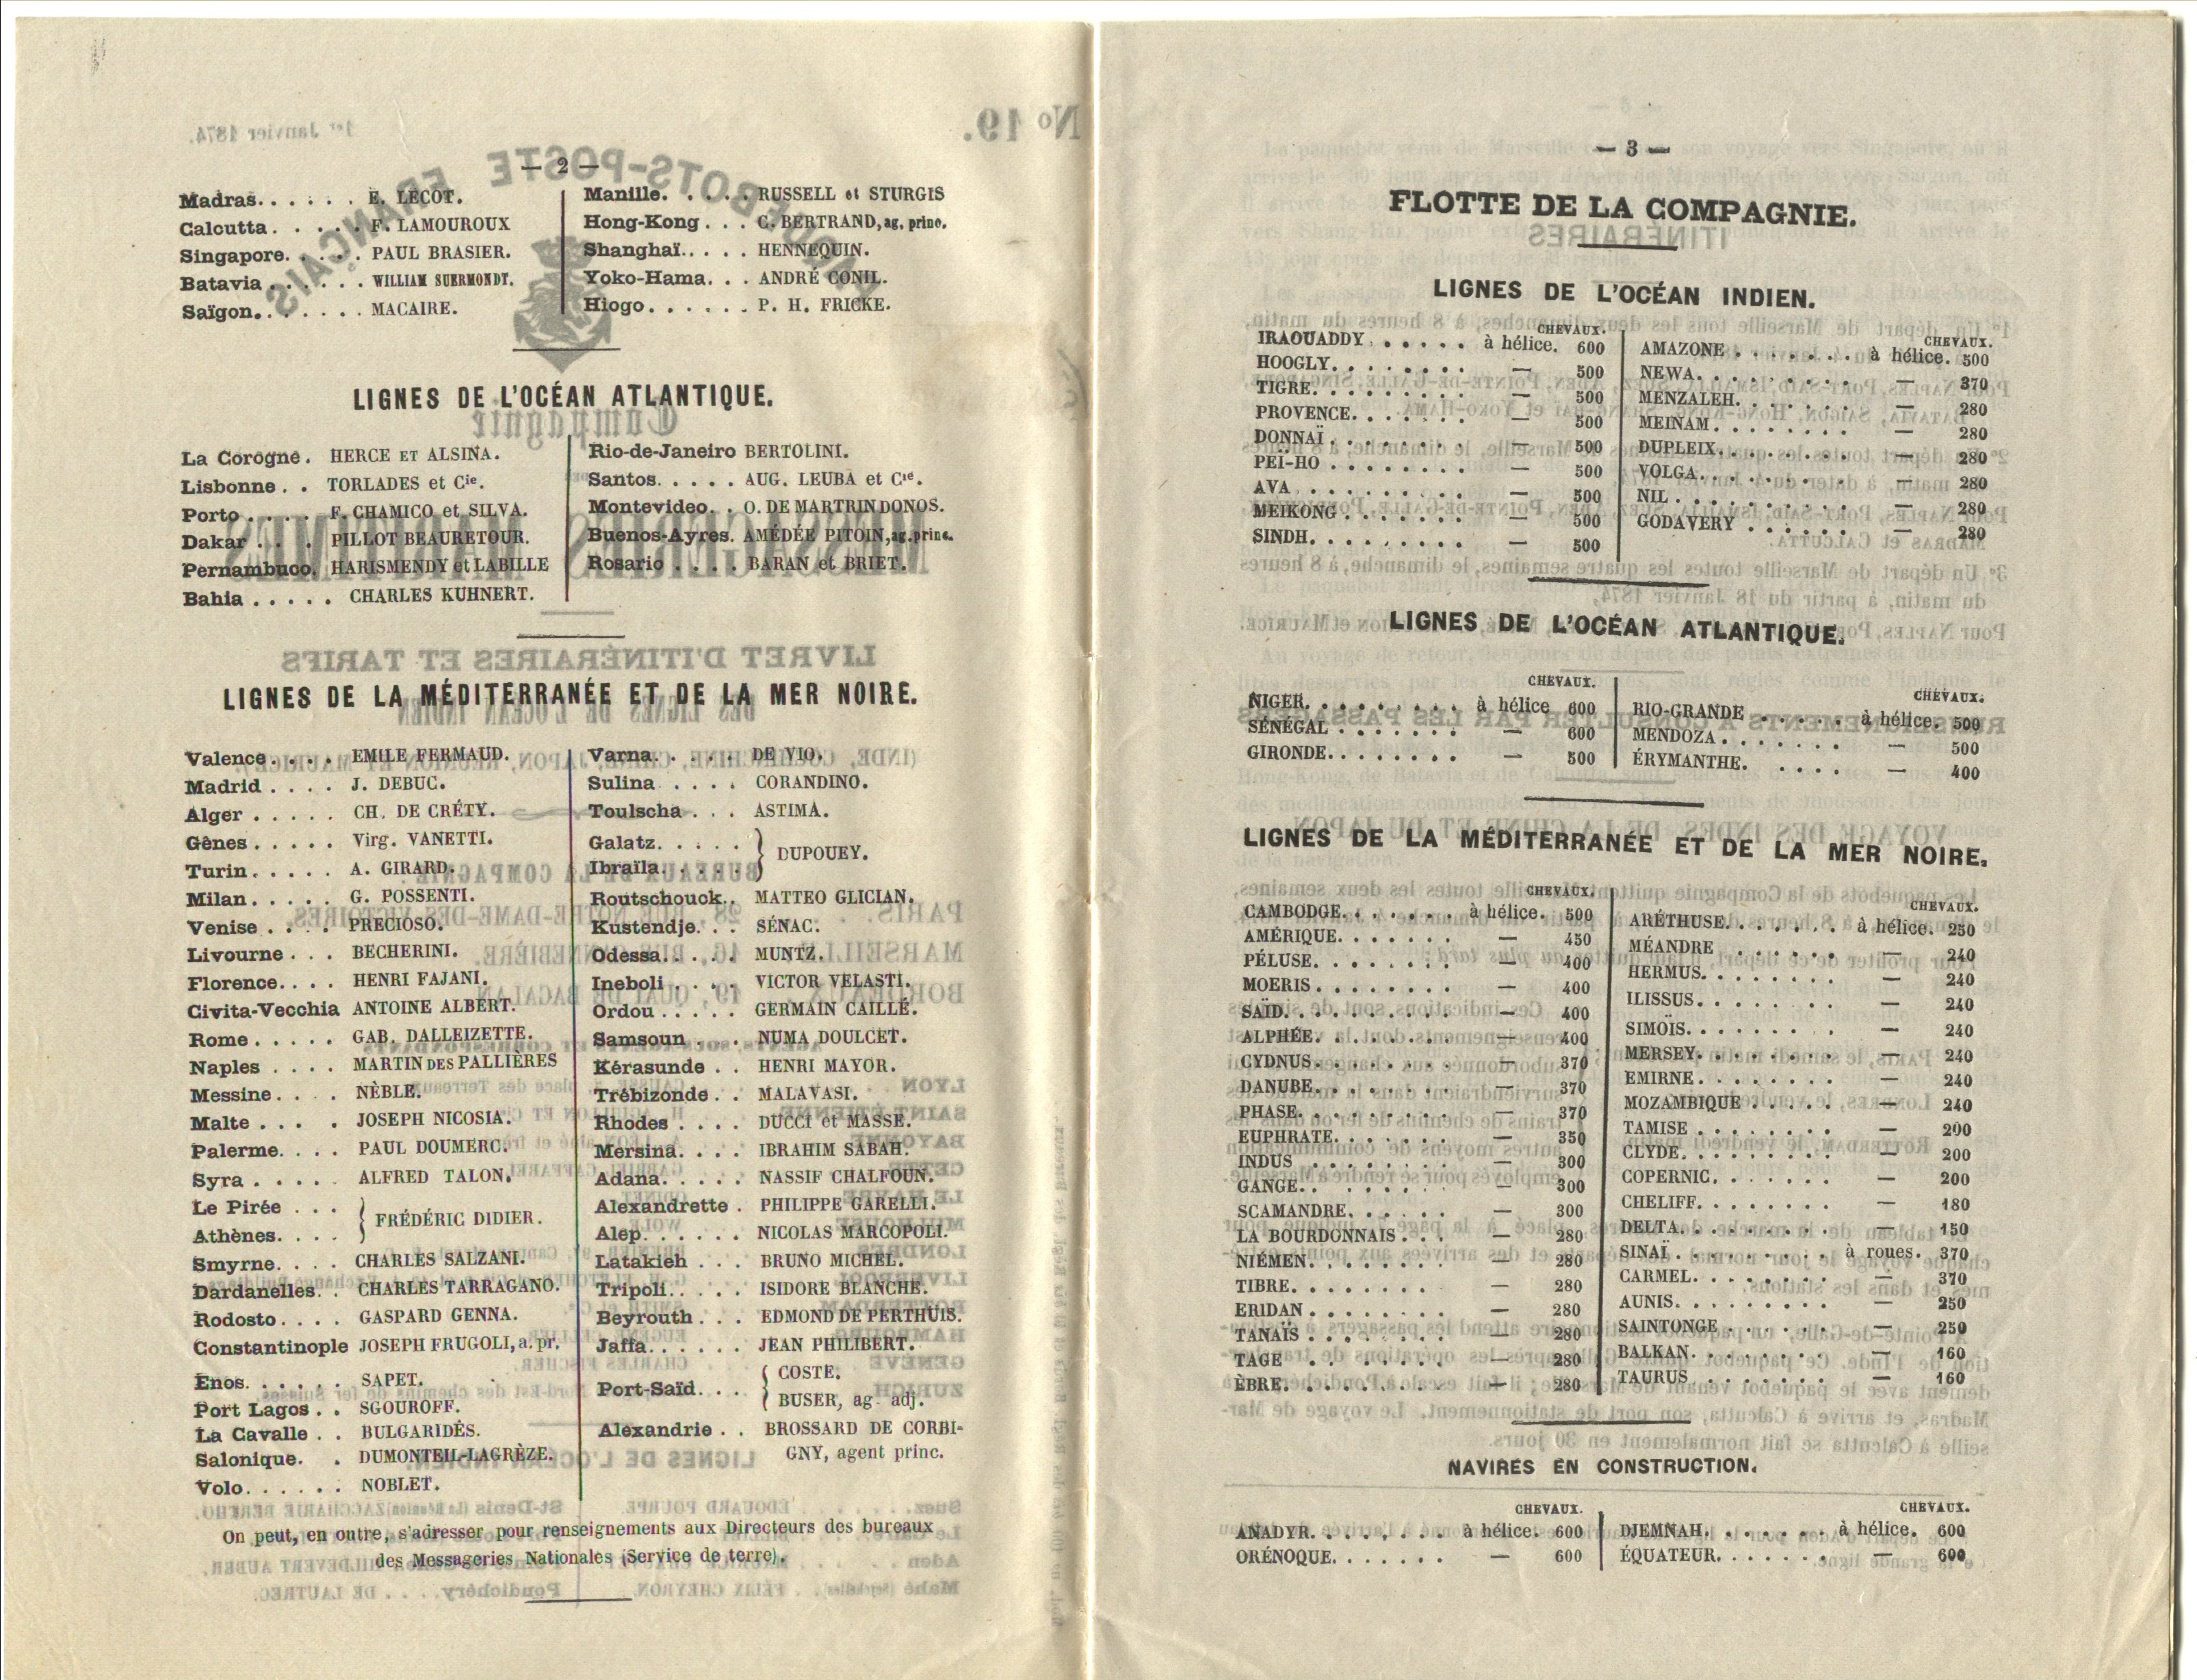 — 2 —
Madras. . . . . . E. LECOT.
Calcutta. . . . . F. LAMOUROUX
Singapore. . . . . PAUL BRASIER.
Batavia . . . . . . WILLIAM SUERMONDT.
Saïgon. . . . . . . MACAIRE.
Manille. . . . . RUSSELL et STURGIS
Hong-Kong . . . C. BERTRAND, ag. princ.
Shanghaï. . . . . HENNEQUIN.
Yoko-Hama. . . ANDRÉ CONIL.
Hiogo. . . . . . P. H. FRICKE.
LIGNES DE L'OCÉAN ATLANTIQUE.
La Corogne. HERCE ET ALSINA.
Lisbonne . . TORLADES et Cie.
Porto . . . . F. CHAMICO et SILVA.
Dakar . . . PILLOT BEAURETOUR.
Pernambuco. HARISMENDY et LABILLE
Bahia . . . . . CHARLES KUHNERT.
Rio-de-Janeiro BERTOLINI.
Santos. . . . . AUG. LEUBA et Cie.
Montevideo. . O. DE MARTRIN DONOS.
Buenos-Ayres. AMÉDÉE PITOIN, ag. princ.
Rosario . . . . BARAN et BRIET.
LIGNES DE LA MÉDITERRANÉE ET DE LA MER NOIRE.
Valence . . . . EMILE FERMAUD.
Madrid . . . . J. DEBUC.
Alger . . . . . CH. DE CRÉTY.
Gênes . . . . . Virg. VANETTI.
Turin. . . . . A. GIRARD.
Milan. . . . . G. POSSENTI.
Venise . . . . PRECIOSO.
Livourne . . . BECHERINI.
Florence. . . . HENRI FAJANI.
Civita-Vecchia ANTOINE ALBERT.
Rome . . . . . GAB. DALLEIZETTE.
Naples . . . . MARTIN DES PALLIÈRES
Messine. . . . NÈBLE.
Malte . . . . JOSEPH NICOSIA.
Palerme. . . . PAUL DOUMERC.
Syra . . . . . ALFRED TALON.
Le Pirée . . .
Athènes. . . . } FRÉDÉRIC DIDIER.
Smyrne. . . . CHARLES SALZANI.
Dardanelles. . CHARLES TARRAGANO.
Rodosto . . . . GASPARD GENNA.
Constantinople JOSEPH FRUGOLI, a. pr.
Enos. . . . . . SAPET.
Port Lagos . . SGOUROFF.
La Cavalle . . BULGARIDÈS.
Salonique. . DUMONTEIL-LAGRÈZE.
Volo. . . . . . NOBLET.
Varna. . . . . DE VIO.
Sulina . . . . CORANDINO.
Toulscha . . . ASTIMA.
Galatz. . . . .
Ibraïla. . . . . } DUPOUEY.
Routschouck. . MATTEO GLICIAN.
Kustendje. . . SÉNAC.
Odessa. . . . . MUNTZ.
Ineboli . . . . VICTOR VELASTI.
Ordou . . . . . GERMAIN CAILLÉ.
Samsoun . . . NUMA DOULCET.
Kérasunde . . HENRI MAYOR.
Trébizonde. . MALAVASI.
Rhodes . . . . DUCCI et MASSE.
Mersina. . . . IBRAHIM SABAH.
Adana. . . . . NASSIF CHALFOUN.
Alexandrette . PHILIPPE GARELLI.
Alep. . . . . . NICOLAS MARCOPOLI.
Latakieh . . . BRUNO MICHEL.
Tripoli. . . . . ISIDORE BLANCHE.
Beyrouth . . . EDMOND DE PERTHUIS.
Jaffa. . . . . . JEAN PHILIBERT.
Port-Saïd. . . { COSTE.
BUSER, ag. adj.
Alexandrie . . BROSSARD DE CORBI-
GNY, agent princ.
On peut, en outre, s'adresser pour renseignements aux Directeurs des bureaux
des Messageries Nationales (Service de terre).
— 3 —
FLOTTE DE LA COMPAGNIE.
LIGNES DE L'OCÉAN INDIEN.
CHEVAUX.
IRAOUADDY . . . . . à hélice. 600
HOOGLY. . . . . . . — 500
TIGRE. . . . . . . . — 500
PROVENCE. . . . . . — 500
DONNAÏ . . . . . . . — 500
PEÏ-HO . . . . . . . — 500
AVA . . . . . . . . — 500
MEIKONG . . . . . . — 500
SINDH. . . . . . . . — 500
CHEVAUX.
AMAZONE . . . . . . à hélice. 500
NEWA. . . . . . . . — 370
MENZALEH. . . . . . — 280
MEINAM. . . . . . . — 280
DUPLEIX. . . . . . . — 280
VOLGA. . . . . . . . — 280
NIL . . . . . . . . — 280
GODAVERY . . . . . — 280
LIGNES DE L'OCÉAN ATLANTIQUE.
CHEVAUX.
NIGER. . . . . . . . à hélice 600
SÉNÉGAL . . . . . . — 600
GIRONDE. . . . . . . — 500
CHEVAUX.
RIO-GRANDE . . . . . à hélice. 500
MENDOZA . . . . . . — 500
ÉRYMANTHE. . . . . — 400
LIGNES DE LA MÉDITERRANÉE ET DE LA MER NOIRE.
CHEVAUX.
CAMBODGE. . . . . . à hélice. 500
AMÉRIQUE. . . . . . — 450
PÉLUSE. . . . . . . — 400
MOERIS . . . . . . . — 400
SAÏD. . . . . . . . — 400
ALPHÉE. . . . . . . — 400
CYDNUS. . . . . . . — 370
DANUBE. . . . . . . — 370
PHASE. . . . . . . . — 370
EUPHRATE. . . . . . — 350
INDUS . . . . . . . — 300
GANGE. . . . . . . . — 300
SCAMANDRE. . . . . — 300
LA BOURDONNAIS . . . — 280
NIÉMEN. . . . . . . — 280
TIBRE. . . . . . . . — 280
ERIDAN . . . . . . . — 280
TANAÏS . . . . . . . — 280
TAGE . . . . . . . . — 280
ÈBRE. . . . . . . . — 280
CHEVAUX.
ARÉTHUSE. . . . . . à hélice. 250
MÉANDRE . . . . . . — 240
HERMUS. . . . . . . — 240
ILISSUS. . . . . . . — 240
SIMOÏS. . . . . . . — 240
MERSEY. . . . . . . — 240
EMIRNE. . . . . . . — 240
MOZAMBIQUE . . . . — 240
TAMISE . . . . . . . — 200
CLYDE. . . . . . . . — 200
COPERNIC. . . . . . — 200
CHELIFF. . . . . . . — 180
DELTA. . . . . . . . — 150
SINAÏ . . . . . . . . à roues. 370
CARMEL. . . . . . . — 370
AUNIS. . . . . . . . — 250
SAINTONGE . . . . . — 250
BALKAN. . . . . . . — 160
TAURUS. . . . . . . — 160
NAVIRES EN CONSTRUCTION.
CHEVAUX.
ANADYR. . . . . . . à hélice. 600
ORÉNOQUE. . . . . . — 600
CHEVAUX.
DJEMNAH. . . . . . à hélice. 600
ÉQUATEUR. . . . . . — 600